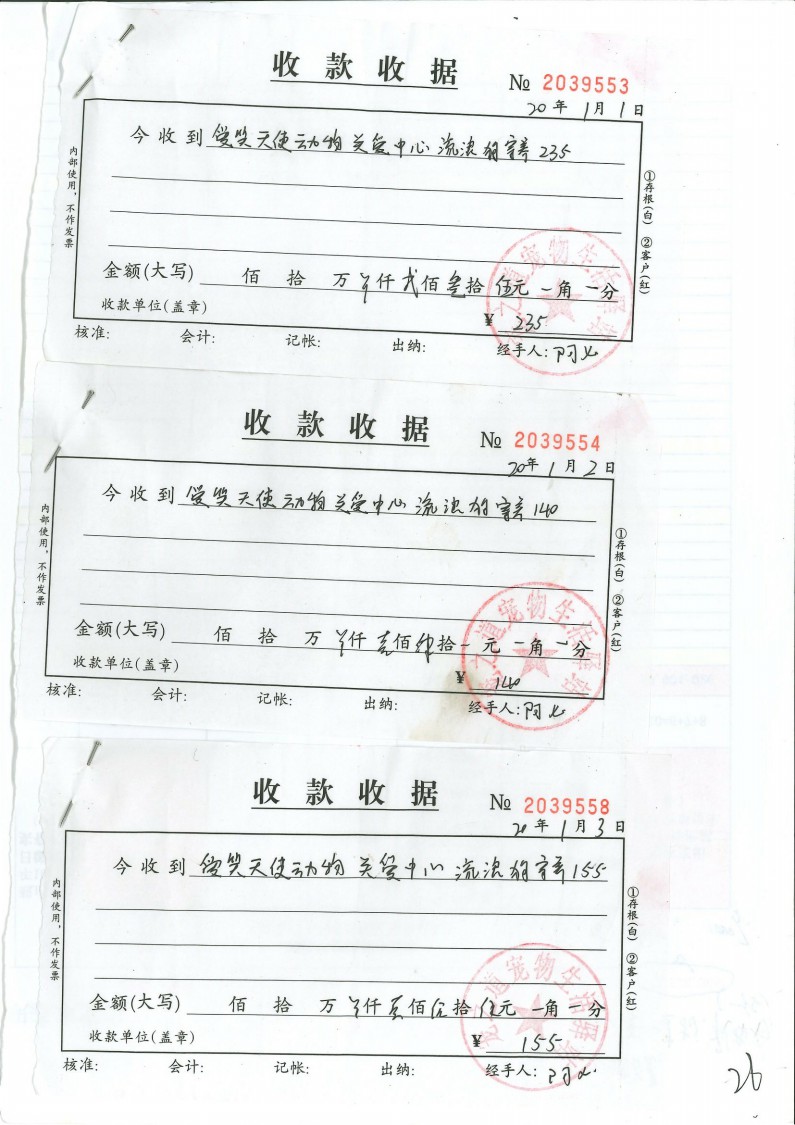 收款收据
№ 2039553
20年1月1日
今收到 爱笑天使动物关爱中心流浪狗寄养235
金额(大写) 佰 拾 万 ¥仟贰佰叁拾伍元一角一分
收款单位(盖章) ¥ 235
核准: 会计: 记帐: 出纳: 经手人:阿火
内部使用,不作发票
①存根(白) ②客户(红)
道宠物生活驿站
收款收据
№ 2039554
20年1月2日
今收到 爱笑天使动物关爱中心流浪狗寄养140
金额(大写) 佰 拾 万 ¥仟壹佰肆拾一元一角一分
收款单位(盖章) ¥ 140
核准: 会计: 记帐: 出纳: 经手人:阿火
内部使用,不作发票
①存根(白) ②客户(红)
道宠物生活驿站
收款收据
№ 2039558
20年1月3日
今收到 爱笑天使动物关爱中心流浪狗寄养155
金额(大写) 佰 拾 万 ¥仟壹佰伍拾伍元一角一分
收款单位(盖章) ¥ 155
核准: 会计: 记帐: 出纳: 经手人:阿火
内部使用,不作发票
①存根(白) ②客户(红)
道宠物生活驿站
26